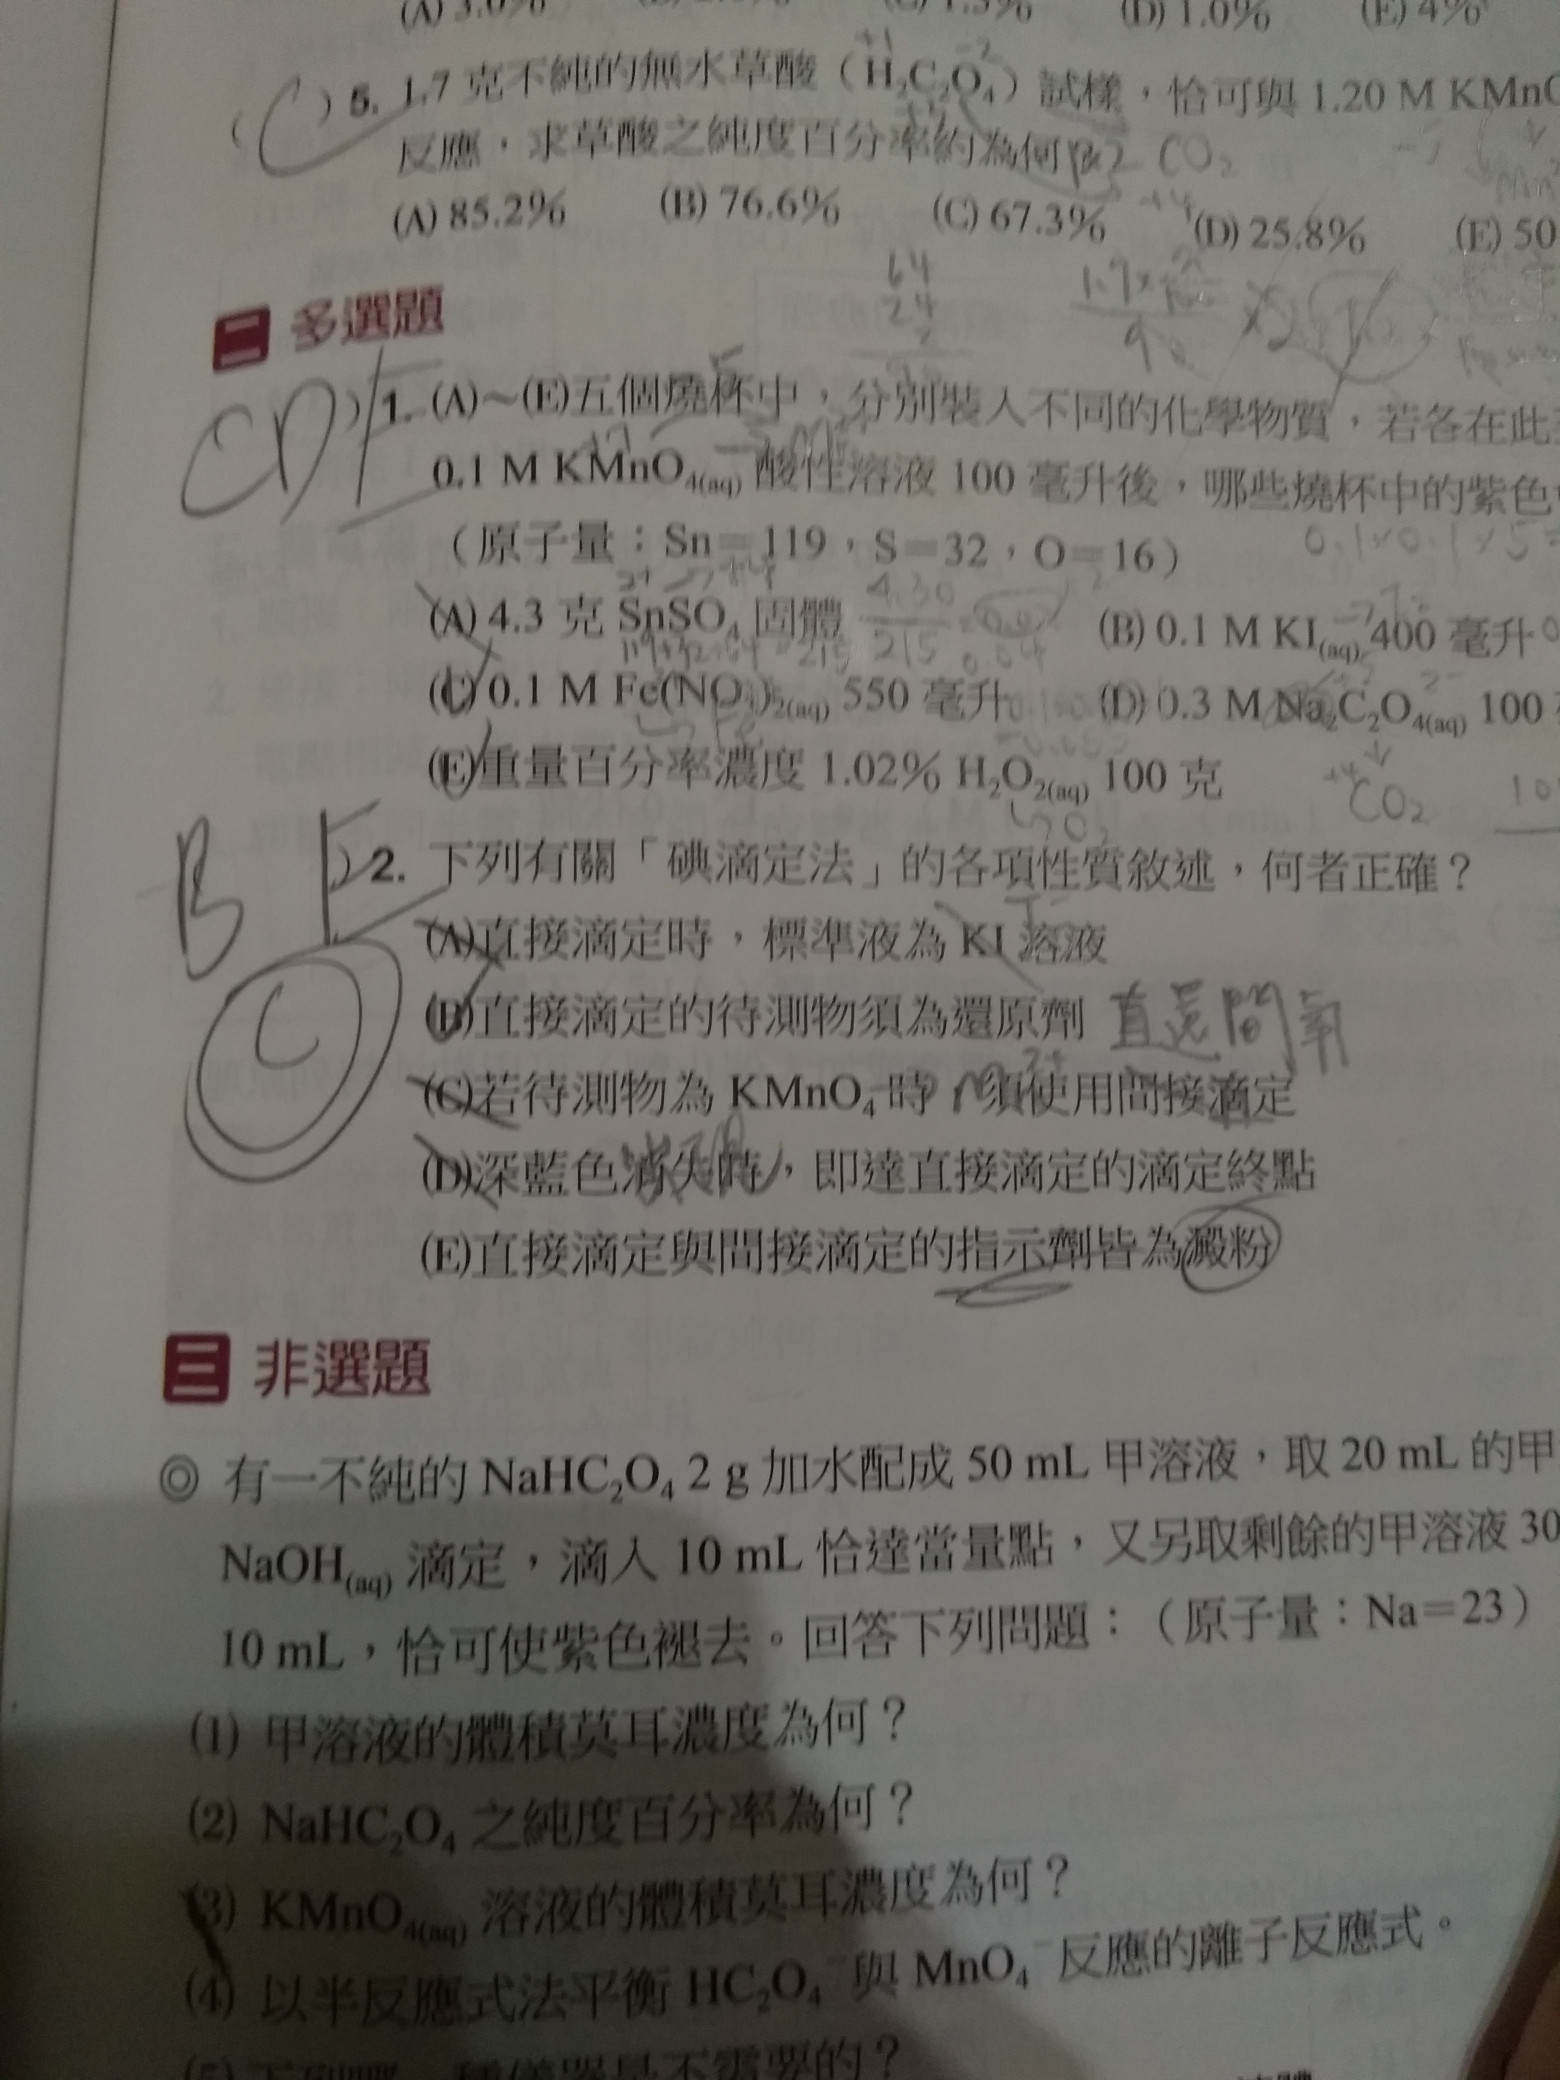 (A) 3.0% (C) 1.5% (D) 1.0% (E) 4%
( C ) 5. 1.7 克不純的無水草酸（H₂C₂O₄）試樣，恰可與 1.20 M KMnO
反應，求草酸之純度百分率約為何？ CO₂
(A) 85.2% (B) 76.6% (C) 67.3% (D) 25.8% (E) 50
64
24
2
二 多選題
CDE ) 1. (A)～(E)五個燒杯中，分別裝入不同的化學物質，若各在此
0.1 M KMnO₄(aq) 酸性溶液 100 毫升後，哪些燒杯中的紫色
（原子量：Sn＝119，S＝32，O＝16） 0.1×0.1×5=
(A) 4.3 克 SnSO₄ 固體 (B) 0.1 M KI(aq) 400 毫升
(C) 0.1 M Fe(NO₃)₂(aq) 550 毫升 (D) 0.3 M Na₂C₂O₄(aq) 100
(E)重量百分率濃度 1.02% H₂O₂(aq) 100 克
CO₂
B E ) 2. 下列有關「碘滴定法」的各項性質敘述，何者正確？
(A)直接滴定時，標準液為 KI 溶液
C
(B)直接滴定的待測物須為還原劑 直還間氧
(C)若待測物為 KMnO₄ 時，須使用間接滴定
(D)深藍色消失時，即達直接滴定的滴定終點
(E)直接滴定與間接滴定的指示劑皆為澱粉
三 非選題
◎ 有一不純的 NaHC₂O₄ 2 g 加水配成 50 mL 甲溶液，取 20 mL 的甲
NaOH(aq) 滴定，滴入 10 mL 恰達當量點，又另取剩餘的甲溶液 30
10 mL，恰可使紫色褪去。回答下列問題：（原子量：Na＝23）
(1) 甲溶液的體積莫耳濃度為何？
(2) NaHC₂O₄ 之純度百分率為何？
(3) KMnO₄(aq) 溶液的體積莫耳濃度為何？
(4) 以半反應式法平衡 HC₂O₄⁻ 與 MnO₄⁻ 反應的離子反應式。